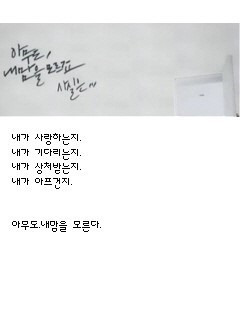 아무도!
내맘을 모르죠
사실은~
내가 사랑하는지.
내가 기다리는지.
내가 상처받는지.
내가 아프건지.
아무도.내맘을 모른다.